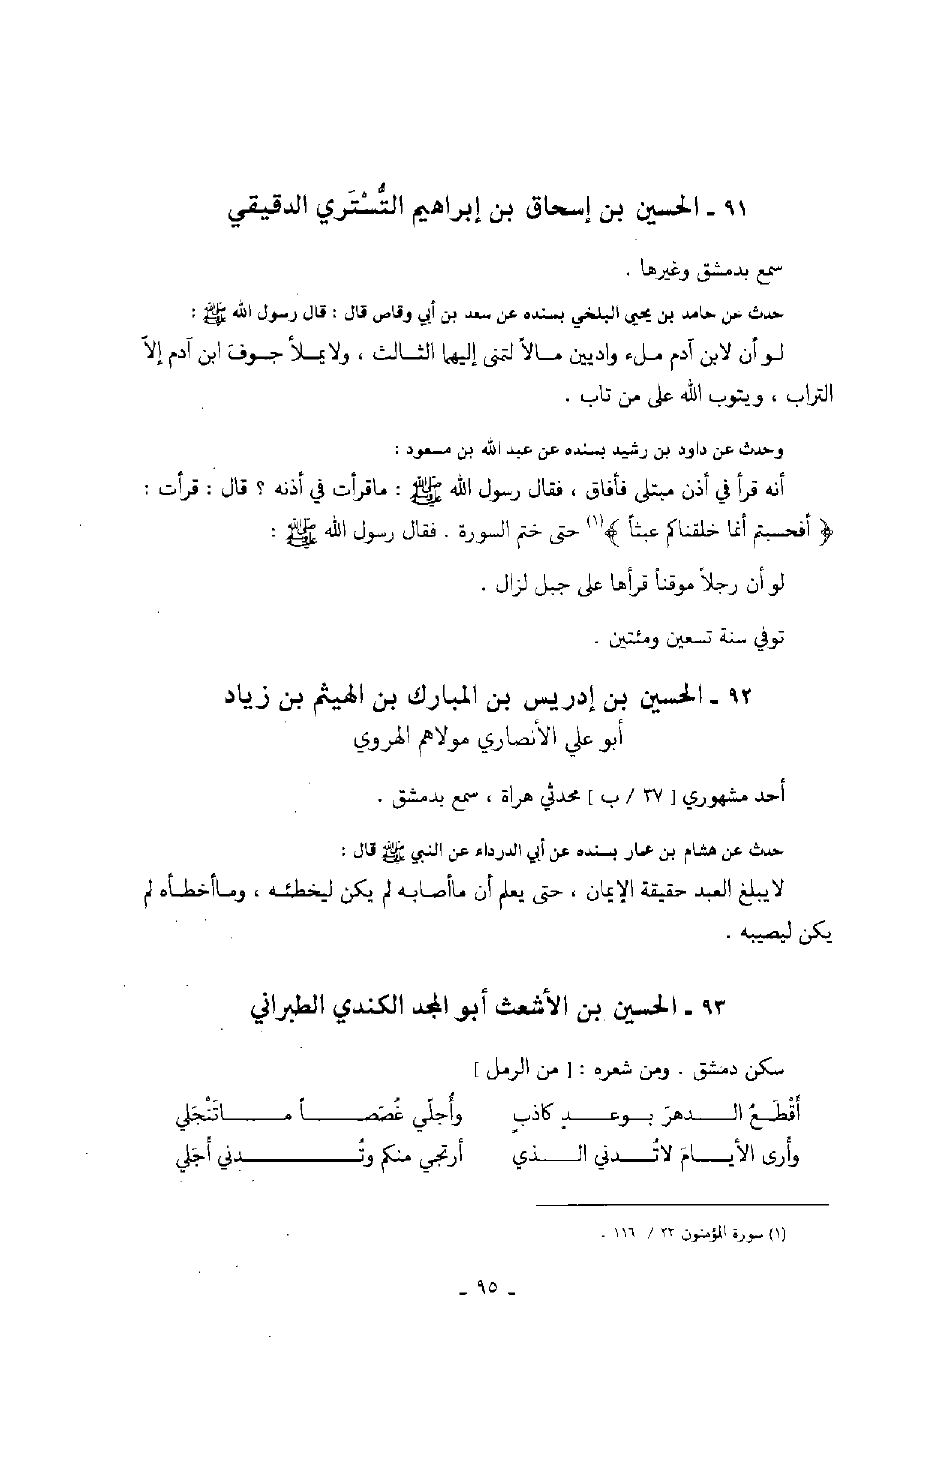 ٩١ ـ الحسين بن إسحاق بن إبراهيم التُّسْتَري الدقيقي
سمع بدمشق وغيرها .
حدث عن حامد بن يحيى البلخي بسنده عن سعد بن أبي وقاص قال : قال رسول الله ﷺ :
لو أن لابن آدم ملء واديين مالاً لتمنى إليها الثالث ، ولايملأ جوف ابن آدم إلاّ
التراب ، ويتوب الله على من تاب .
وحدث عن داود بن رشيد بسنده عن عبد الله بن مسعود :
أنه قرأ في أذن مبتلى فأفاق ، فقال رسول الله ﷺ : ماقرأت في أذنه ؟ قال : قرأت :
﴿ أفحسبتم أنما خلقناكم عبثاً ﴾(١) حتى ختم السورة . فقال رسول الله ﷺ :
لو أن رجلاً موقناً قرأها على جبل لزال .
توفي سنة تسعين ومئتين .
٩٢ ـ الحسين بن إدريس بن المبارك بن الهيثم بن زياد
أبو علي الأنصاري مولاهم الهروي
أحد مشهوري [ ٣٧ / ب ] محدثي هراة ، سمع بدمشق .
حدث عن هشام بن عمار بسنده عن أبي الدرداء عن النبي ﷺ قال :
لايبلغ العبد حقيقة الإيمان ، حتى يعلم أن ماأصابه لم يكن ليخطئه ، وماأخطأه لم
يكن ليصيبه .
٩٣ ـ الحسين بن الأشعث أبو المجد الكندي الطبراني
سكن دمشق . ومن شعره : [ من الرمل ]
أَقْطَعُ الدهرَ بوعدٍ كاذبٍ وأُجلّي غُصَصاً ماتَنْجَلي
وأرى الأيامَ لاتُدني الذي أرتجي منكم وتُدني أجَلي
(١) سورة المؤمنون ٢٣ / ١١٦ .
ـ ٩٥ ـ